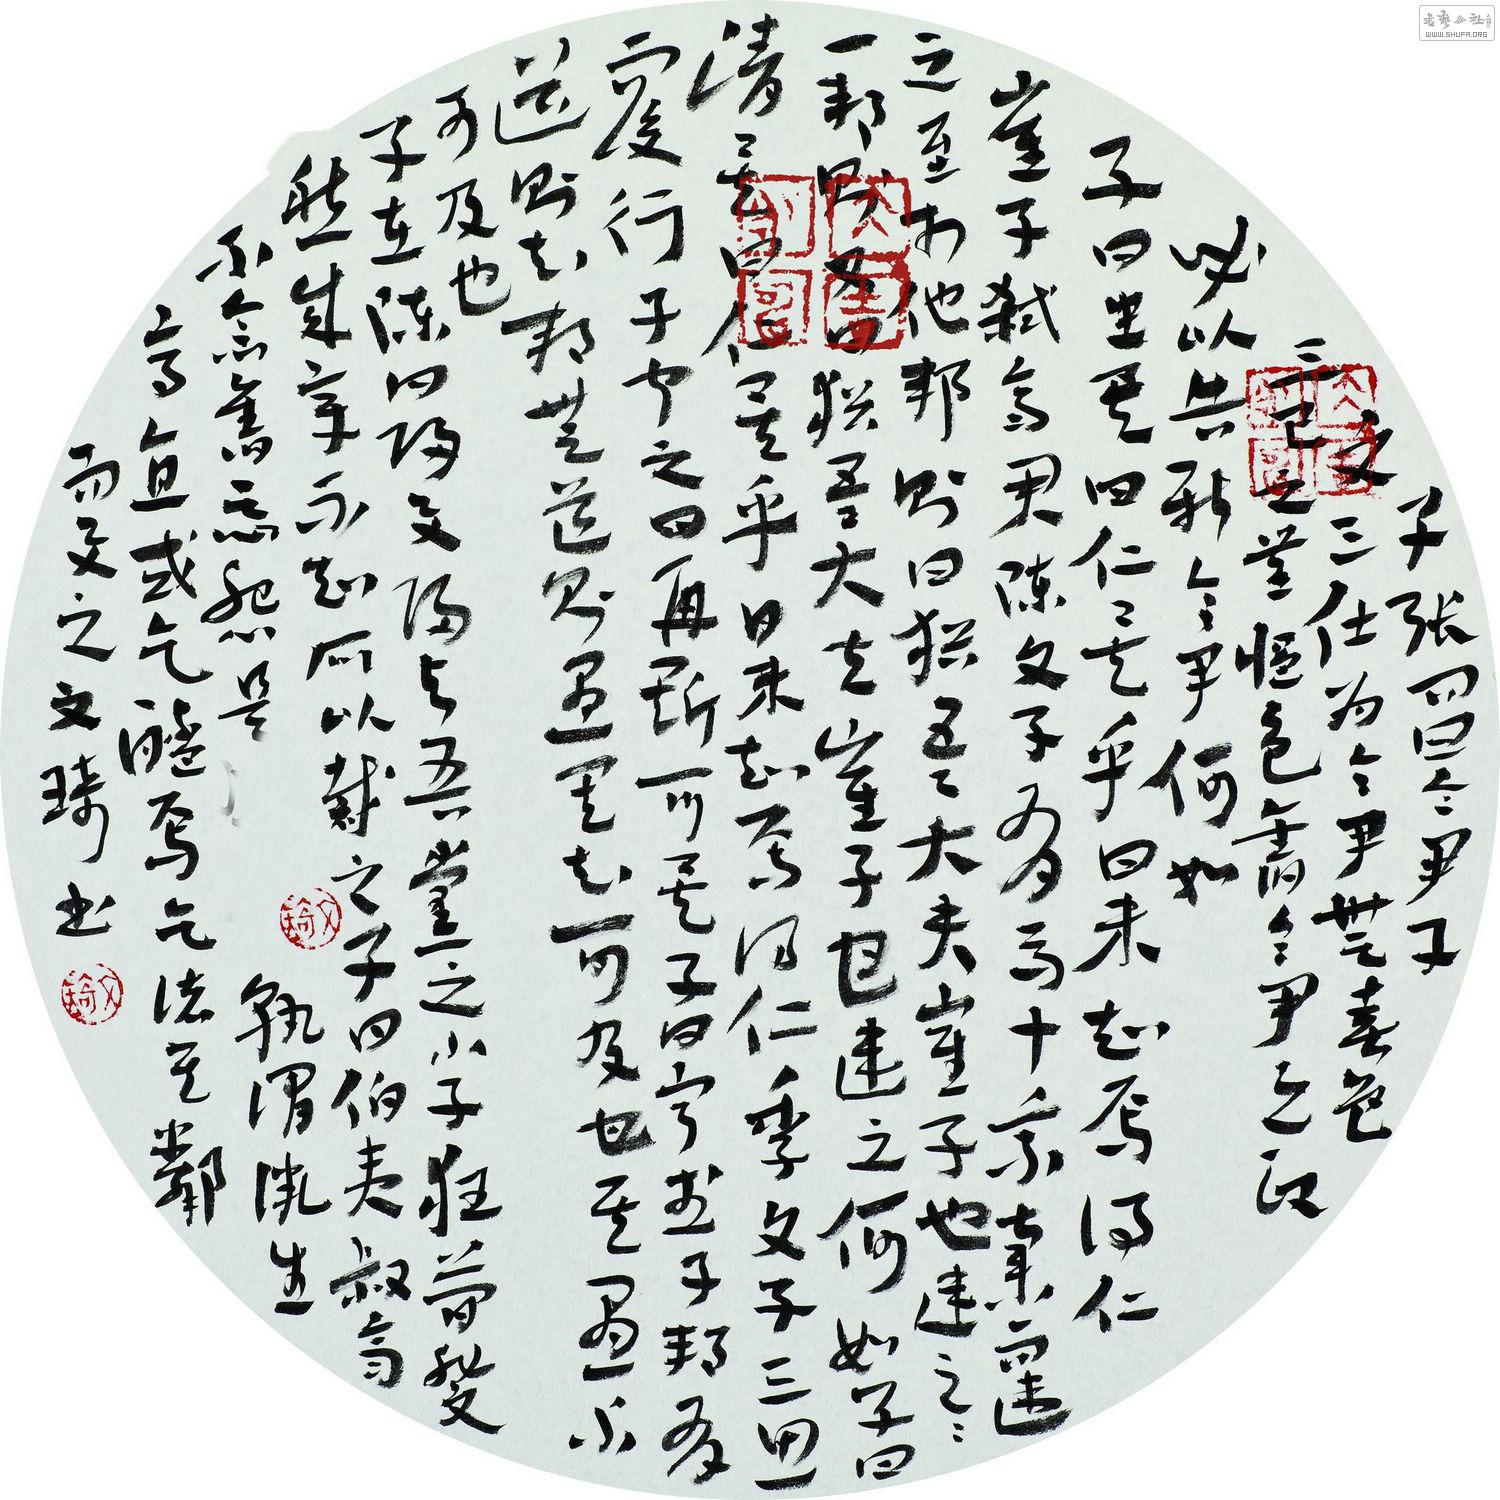 子張問曰令尹子
文三仕為令尹無喜色
三已之無慍色舊令尹之政
必以告新令尹何如
子曰忠矣曰仁矣乎曰未知焉得仁
崔子弒齊君陳文子有馬十乘棄而違
之至於他邦則曰猶吾大夫崔子也違之之
一邦則又曰猶吾大夫崔子也違之何如子曰
清矣曰仁矣乎曰未知焉得仁季文子三思
而後行子聞之曰再斯可矣子曰甯武子邦有
道則知邦無道則愚其知可及也其愚不
可及也
子在陳曰歸與歸與吾黨之小子狂簡斐
然成章不知所以裁之子曰伯夷叔齊
不念舊惡怨是
孰謂微生
高直或乞醯焉乞諸其鄰
而與之文琦書
WWW.SHUFA.ORG